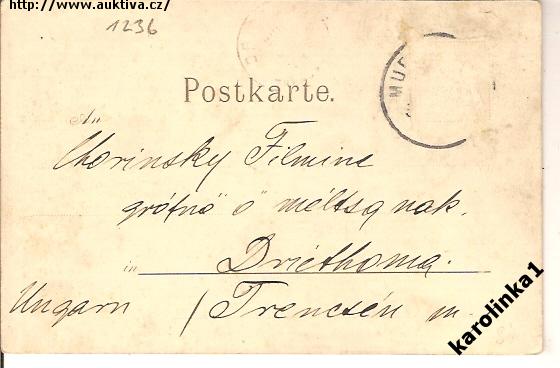 http://www.auktiva.cz/
1236
Postkarte.
An
Chorinsky Filmine
grófnő ő méltsgnak.
in Driethoma.
Ungarn / Trencsén m.
karolinka1